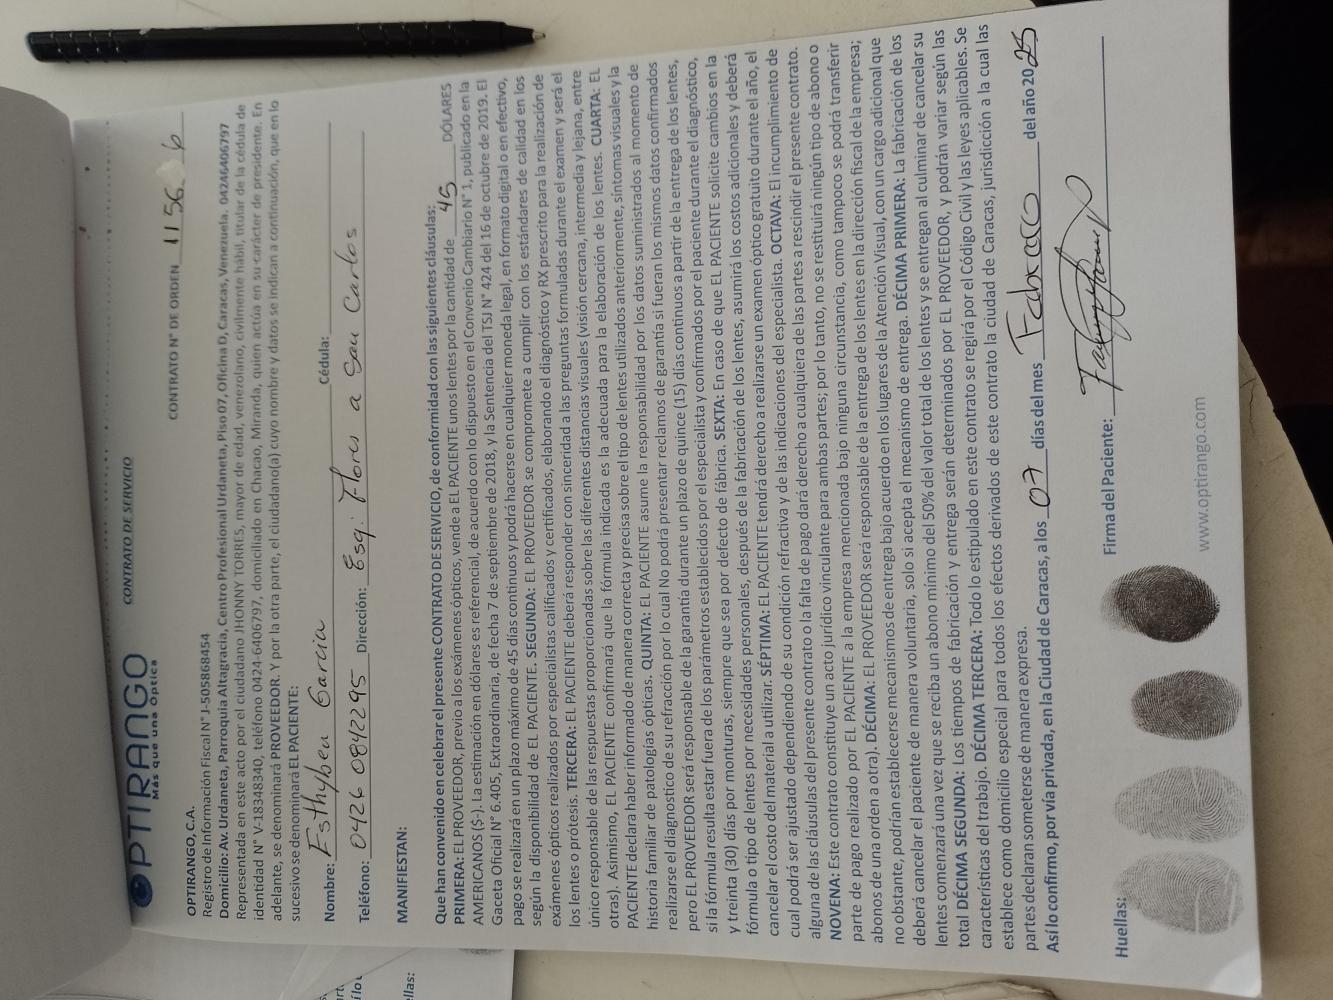 OPTIRANGO
Más que una Óptica
CONTRATO DE SERVICIO
CONTRATO N° DE ORDEN 1156 6
OPTIRANGO, C.A.
Registro de Información Fiscal N° J-505868454
Domicilio: Av. Urdaneta, Parroquia Altagracia, Centro Profesional Urdaneta, Piso 07, Oficina D, Caracas, Venezuela. 04246406797
Representada en este acto por el ciudadano JHONNY TORRES, mayor de edad, venezolano, civilmente hábil, titular de la cédula de
identidad N° V-18348340, teléfono 0424-6406797, domiciliado en Chacao, Miranda, quien actúa en su carácter de presidente. En
adelante, se denominará PROVEEDOR. Y por la otra parte, el ciudadano(a) cuyo nombre y datos se indican a continuación, que en lo
sucesivo se denominará EL PACIENTE:
Nombre: Esthyben Garcia Cédula:
Teléfono: 0426 0842295 Dirección: Esq: Flores a San Carlos
MANIFIESTAN:
Que han convenido en celebrar el presente CONTRATO DE SERVICIO, de conformidad con las siguientes cláusulas:
PRIMERA: EL PROVEEDOR, previo a los exámenes ópticos, vende a EL PACIENTE unos lentes por la cantidad de 45 DÓLARES
AMERICANOS ($-). La estimación en dólares es referencial, de acuerdo con lo dispuesto en el Convenio Cambiario N° 1, publicado en la
Gaceta Oficial N° 6.405, Extraordinaria, de fecha 7 de septiembre de 2018, y la Sentencia del TSJ N° 424 del 16 de octubre de 2019. El
pago se realizará en un plazo máximo de 45 días continuos y podrá hacerse en cualquier moneda legal, en formato digital o en efectivo,
según la disponibilidad de EL PACIENTE. SEGUNDA: EL PROVEEDOR se compromete a cumplir con los estándares de calidad en los
exámenes ópticos realizados por especialistas calificados y certificados, elaborando el diagnóstico y RX prescrito para la realización de
los lentes o prótesis. TERCERA: EL PACIENTE deberá responder con sinceridad a las preguntas formuladas durante el examen y será el
único responsable de las respuestas proporcionadas sobre las diferentes distancias visuales (visión cercana, intermedia y lejana, entre
otras). Asimismo, EL PACIENTE confirmará que la fórmula indicada es la adecuada para la elaboración de los lentes. CUARTA: EL
PACIENTE declara haber informado de manera correcta y precisa sobre el tipo de lentes utilizados anteriormente, síntomas visuales y la
historia familiar de patologías ópticas. QUINTA: EL PACIENTE asume la responsabilidad por los datos suministrados al momento de
realizarse el diagnostico de su refracción por lo cual No podrá presentar reclamos de garantía si fueran los mismos datos confirmados
pero EL PROVEEDOR será responsable de la garantía durante un plazo de quince (15) días continuos a partir de la entrega de los lentes,
si la fórmula resulta estar fuera de los parámetros establecidos por el especialista y confirmados por el paciente durante el diagnóstico,
y treinta (30) días por monturas, siempre que sea por defecto de fábrica. SEXTA: En caso de que EL PACIENTE solicite cambios en la
fórmula o tipo de lentes por necesidades personales, después de la fabricación de los lentes, asumirá los costos adicionales y deberá
cancelar el costo del material a utilizar. SÉPTIMA: EL PACIENTE tendrá derecho a realizarse un examen óptico gratuito durante el año, el
cual podrá ser ajustado dependiendo de su condición refractiva y de las indicaciones del especialista. OCTAVA: El incumplimiento de
alguna de las cláusulas del presente contrato o la falta de pago dará derecho a cualquiera de las partes a rescindir el presente contrato.
NOVENA: Este contrato constituye un acto jurídico vinculante para ambas partes; por lo tanto, no se restituirá ningún tipo de abono o
parte de pago realizado por EL PACIENTE a la empresa mencionada bajo ninguna circunstancia, como tampoco se podrá transferir
abonos de una orden a otra). DÉCIMA: EL PROVEEDOR será responsable de la entrega de los lentes en la dirección fiscal de la empresa;
no obstante, podrían establecerse mecanismos de entrega bajo acuerdo en los lugares de la Atención Visual, con un cargo adicional que
deberá cancelar el paciente de manera voluntaria, solo si acepta el mecanismo de entrega. DÉCIMA PRIMERA: La fabricación de los
lentes comenzará una vez que se reciba un abono mínimo del 50% del valor total de los lentes y se entregan al culminar de cancelar su
total DÉCIMA SEGUNDA: Los tiempos de fabricación y entrega serán determinados por EL PROVEEDOR, y podrán variar según las
características del trabajo. DÉCIMA TERCERA: Todo lo estipulado en este contrato se regirá por el Código Civil y las leyes aplicables. Se
establece como domicilio especial para todos los efectos derivados de este contrato la ciudad de Caracas, jurisdicción a la cual las
partes declaran someterse de manera expresa.
Así lo confirmo, por vía privada, en la Ciudad de Caracas, a los 07 días del mes Febrero del año 2025
Huellas:
Firma del Paciente:
www.optirango.com